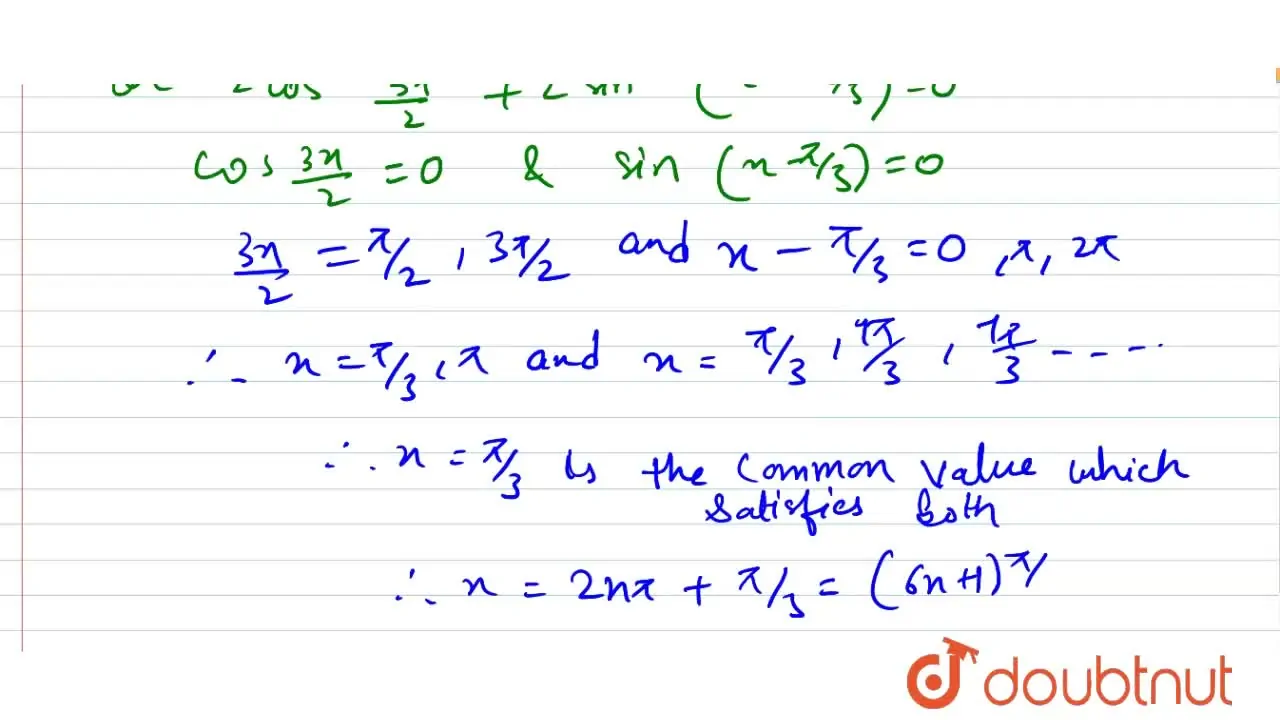 2 cos 3x/2 + 2 sin ( π/3) = 0
cos 3x/2 = 0 & sin (x - π/3) = 0
3x/2 = π/2, 3π/2 and x - π/3 = 0, π, 2π
∴ x = π/3, π and x = π/3, 4π/3, 7π/3 - - - -
∴ x = π/3 is the common value which
satisfies both
∴ x = 2nπ + π/3 = (6n+1) π/
doubtnut